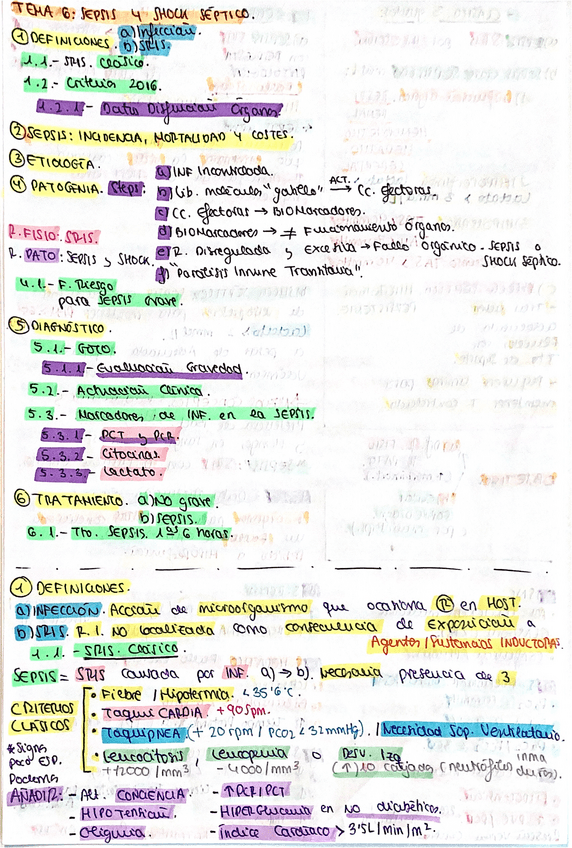 TEMA 6: SEPSIS Y SHOCK SÉPTICO.
① DEFINICIONES. a) Infección.
b) SRIS.
1.1.- SRIS. Clásico.
1.2.- Criterios 2016.
1.2.1- Datos Disfunción Órganos.
② SEPSIS: INCIDENCIA, MORTALIDAD Y COSTES.
③ ETIOLOGÍA.
④ PATOGENIA. Steps:
a) INF Incontrolada.
b) Lib. moléculas "gatillo" ACT. → CC. efectoras.
c) CC. Efectoras → BIOMarcadores.
d) BIOMarcadores → ≠ Funcionamiento Órganos.
R. FISIO: SRIS.
e) R. Disregulada y Excesiva → Fallo orgánico - SEPSIS o SHOCK Séptico.
R. PATO: SEPSIS y SHOCK.
f) "Parálisis Inmune Transitoria".
4.1.- F. Riesgo
para SEPSIS Grave.
⑤ DIAGNÓSTICO.
5.1.- Foco.
5.1.1- Evaluación Gravedad.
5.2.- Actuación Clínica.
5.3.- Marcadores de INF. en la SEPSIS.
5.3.1- PCT y PCR.
5.3.2- Citocinas.
5.3.3- Lactato.
⑥ TRATAMIENTO. a) NO grave.
b) SEPSIS.
6.1.- Tto. SEPSIS. 1as 6 horas.
① DEFINICIONES.
a) INFECCIÓN. Acción de microorganismo que ocasiona en HOST.
b) SRIS. R.I. NO localizada como consecuencia de exposición a
Agentes/Sustancias INDUCTORAS.
1.1.- SRIS. Clásico.
SEPSIS = SRIS causada por INF. a) → b). Necesaria presencia de 3
CRITERIOS CLÁSICOS
• Fiebre / Hipotermia. < 35'6ºC.
• TaquiCARDIA. +90 spm.
• TaquiPNEA (+ 20 rpm / PCO2 < 32 mmHg). / Necesidad Sop. Ventilatorio.
• Leucocitosis, Leucopenia o Desv. Izq
+12000/mm³ -4000/mm³ (↑) 10 cayados (neutrófilos inmaduros).
*Signs
para
Podemos
AÑADIR: - Alt. CONCIENCIA. - ↑PCR/PCT
- HIPOTensión. - HIPERGlucemia en NO diabéticos.
- Oliguria. - Índice Cardíaco > 3'5L/min/m².